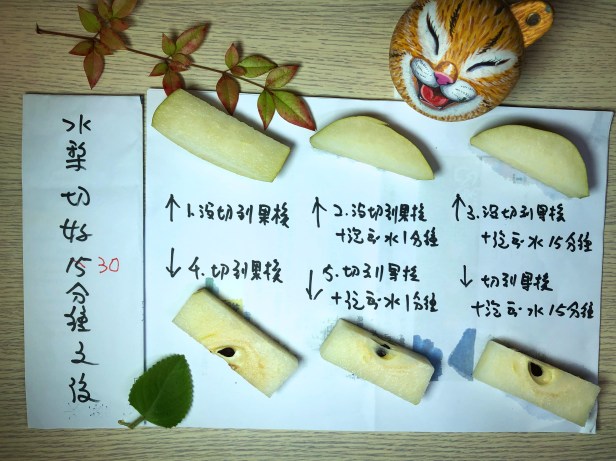 水梨切好15分鐘之後
30
↑ 1.沒切到果核
↑ 2.沒切到果核
+泡水1分鐘
↑ 3.沒切到果核
+泡水15分鐘
↓ 4.切到果核
↓ 5.切到果核
+泡水1分鐘
↓ 切到果核
+泡水15分鐘